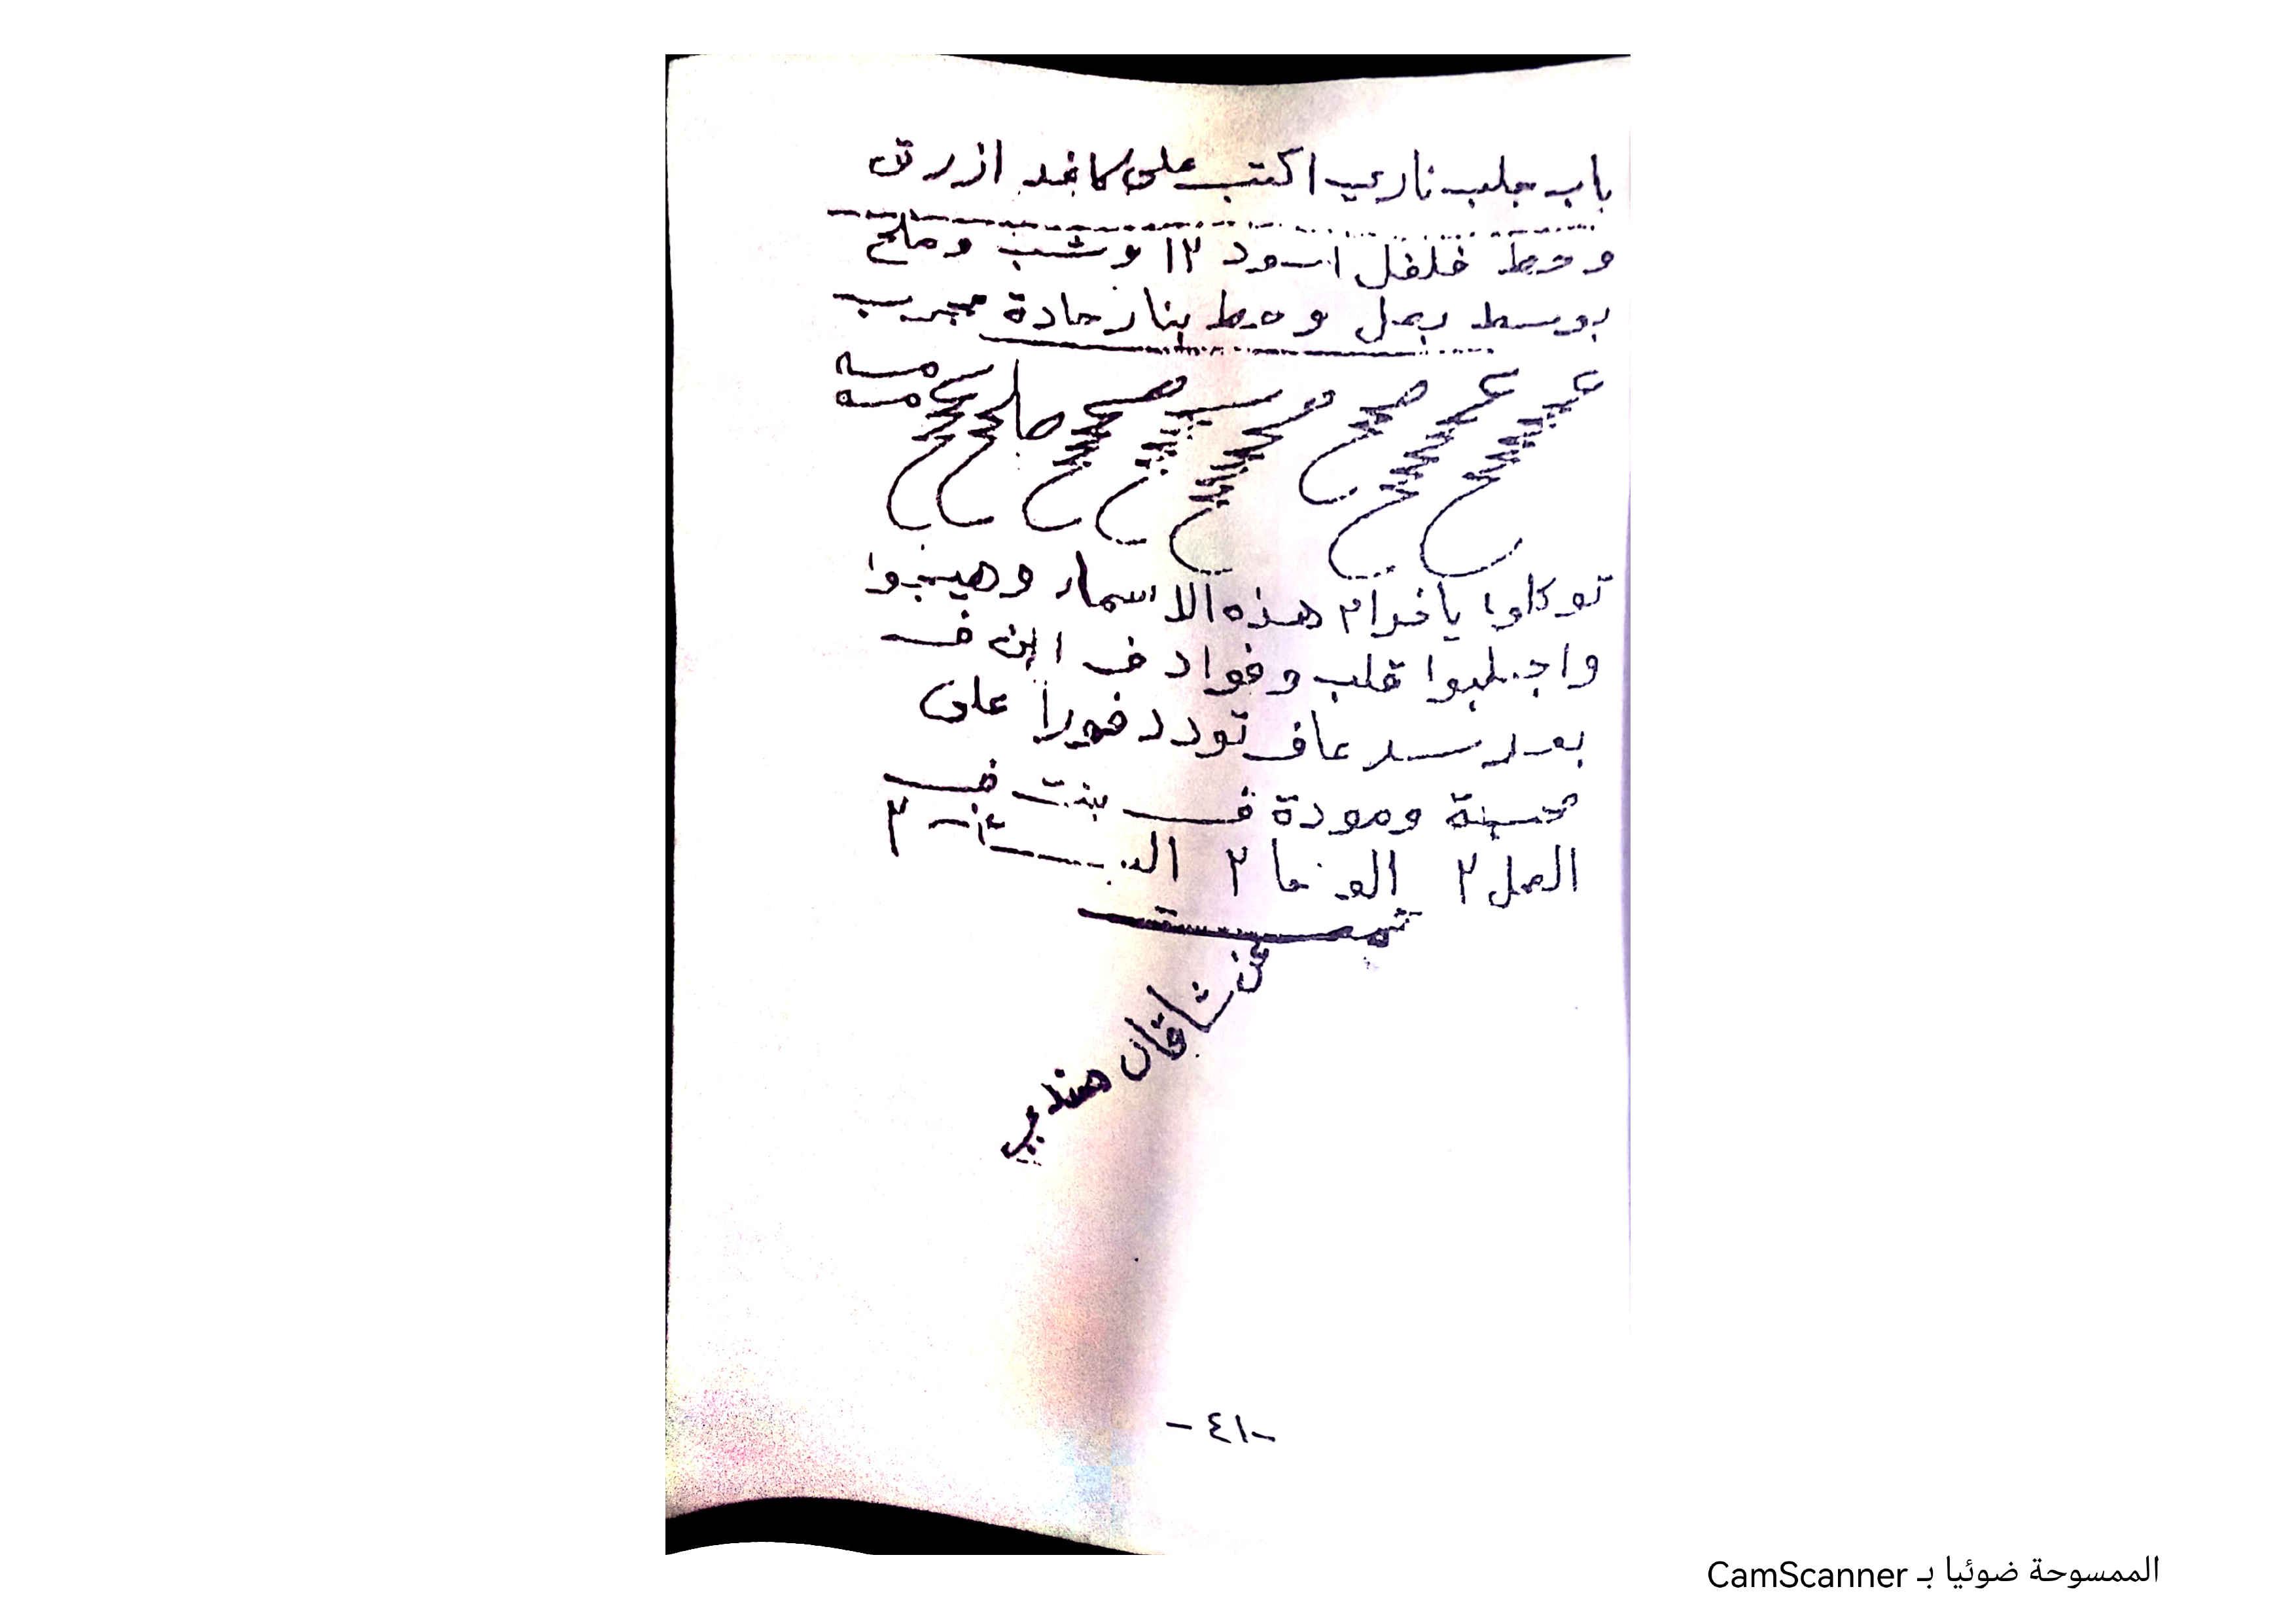 باب جلب ناري اكتب على كاغد ازرق
وحط فلفل اسود ١٢ وشب وملح
بوسط بصل وحط بنار حادة مجرب
توكلوا يا خدام هذه الاسماء وهيجوا
واجلبوا قلب وفواد ف ابن ف
تودد فوراً على
محبة ومودة ف بنت ف
العجل ٢ الوحا ٢ الساعة ٢
تمت
هندي
-٤١-
الممسوحة ضوئيا بـ CamScanner